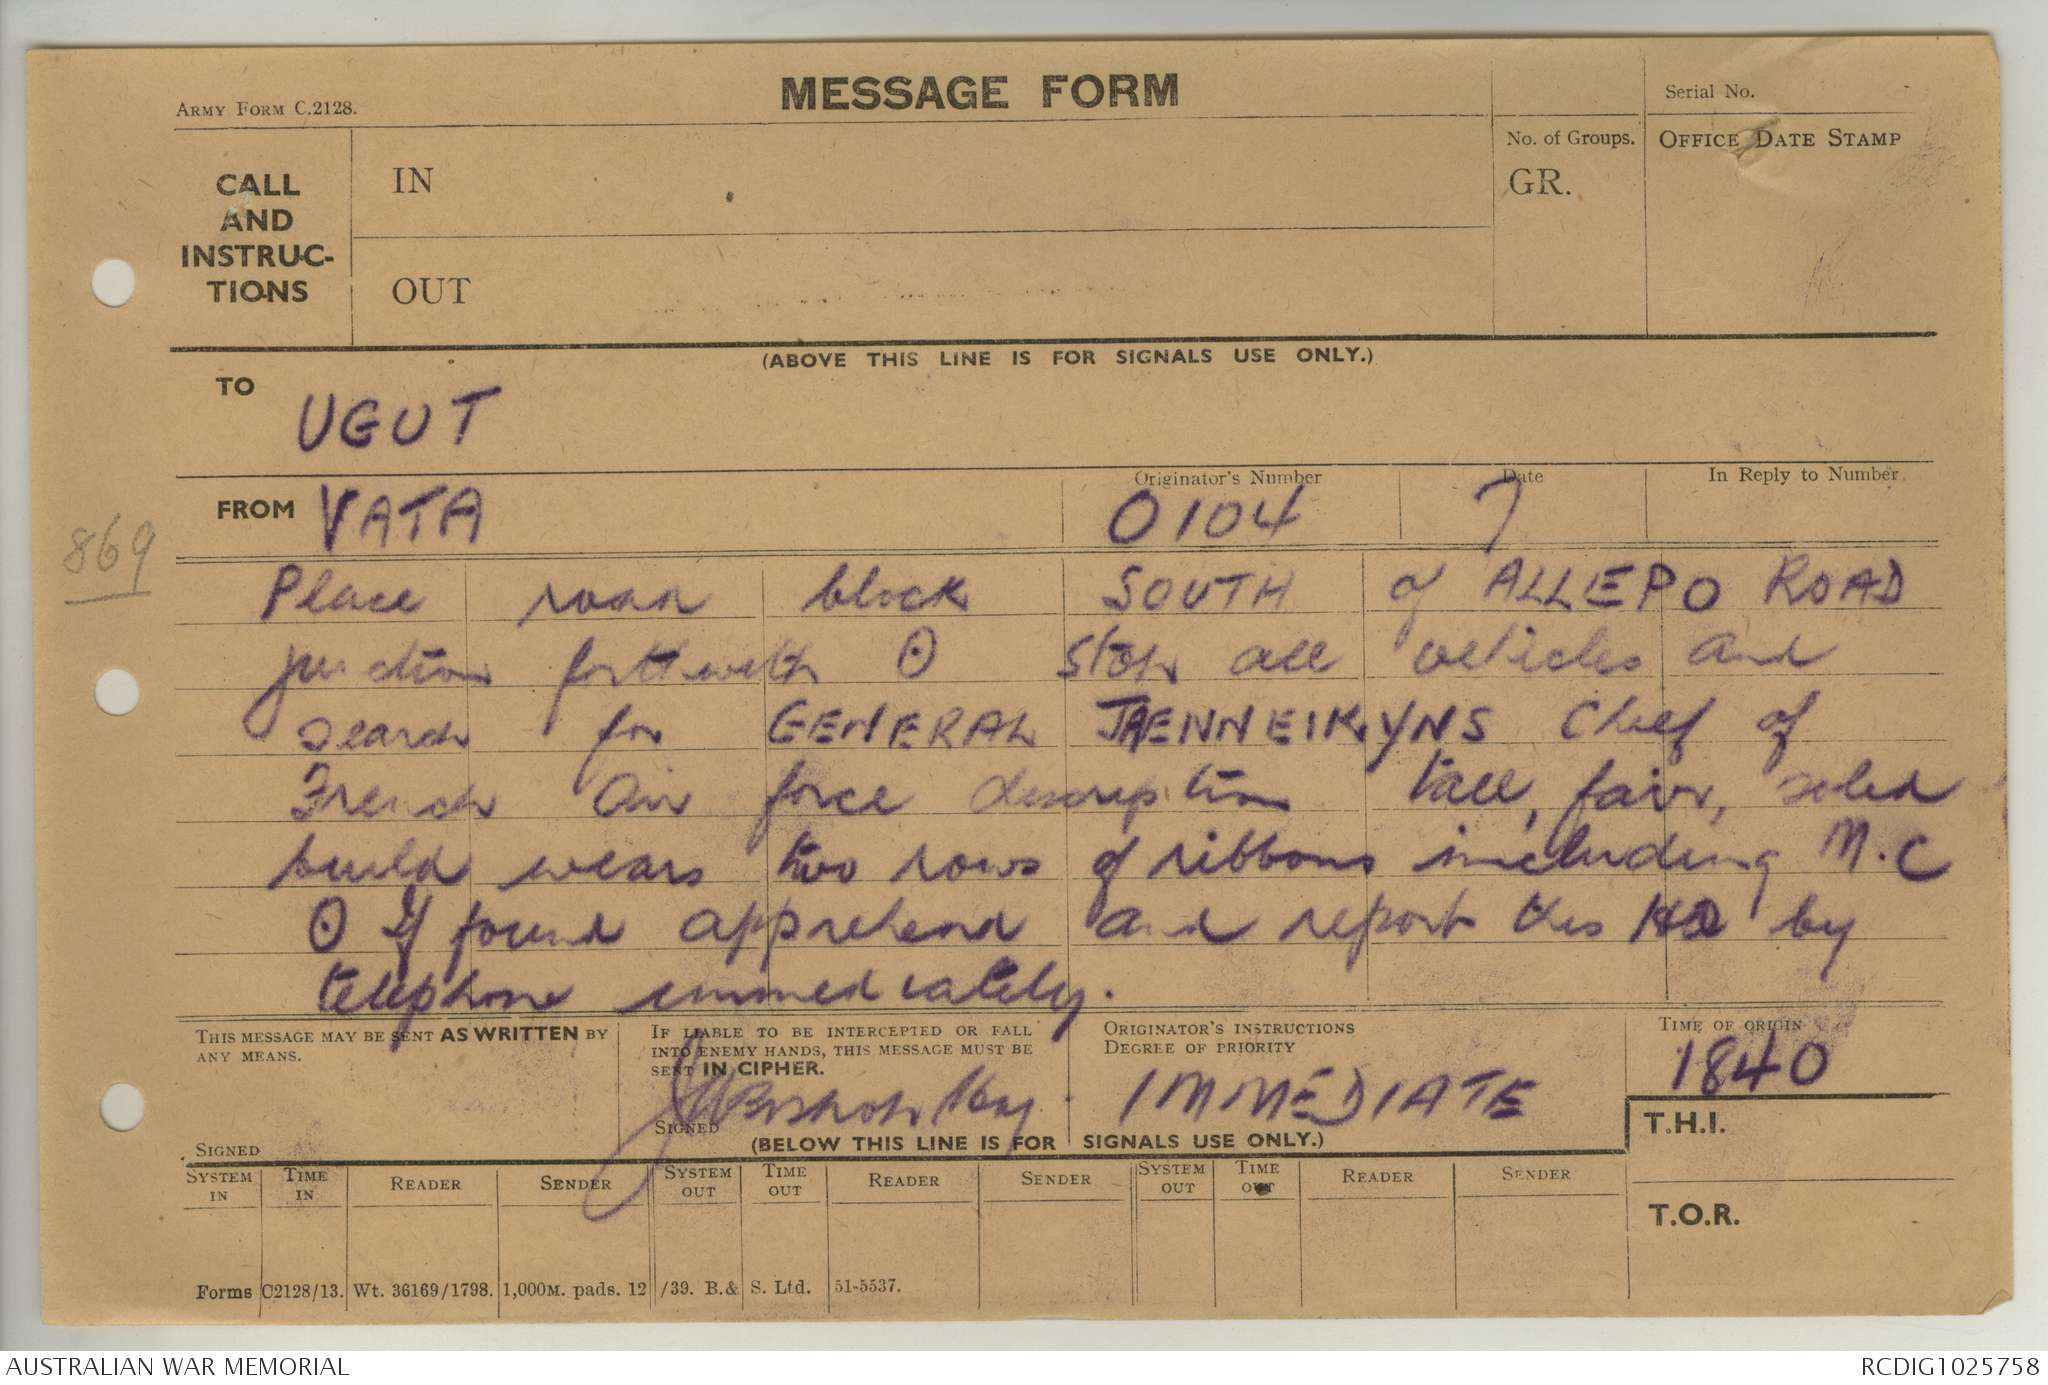 ARMY FORM C.2128.
MESSAGE FORM
Serial No.
CALL AND INSTRUC-TIONS
IN
OUT
No. of Groups.
GR.
OFFICE DATE STAMP
(ABOVE THIS LINE IS FOR SIGNALS USE ONLY.)
TO
UGUT
FROM VATA
Originator's Number
0104
Date
7
In Reply to Number
869
Place road block SOUTH of ALLEPO ROAD
junction forthwith ʘ Stop all vehicles and
search for GENERAL JAENNEIKYNS Chief of
French Air force description tall, fair, solid
build wears two rows of ribbons including M.C
ʘ If found apprehend and report this HQ by
telephone immediately.
THIS MESSAGE MAY BE SENT AS WRITTEN BY
ANY MEANS.
SIGNED
IF LIABLE TO BE INTERCEPTED OR FALL
INTO ENEMY HANDS, THIS MESSAGE MUST BE
SENT IN CIPHER.
SIGNED
ORIGINATOR'S INSTRUCTIONS
DEGREE OF PRIORITY
IMMEDIATE
TIME OF ORIGIN
1840
T.H.I.
T.O.R.
(BELOW THIS LINE IS FOR SIGNALS USE ONLY.)
SYSTEM IN TIME IN READER SENDER SYSTEM OUT TIME OUT READER SENDER SYSTEM OUT TIME OUT READER SENDER
Forms C2128/13. Wt. 36169/1798. 1,000M. pads. 12/39. B.& S. Ltd. 51-5537.
AUSTRALIAN WAR MEMORIAL
RCDIG1025758